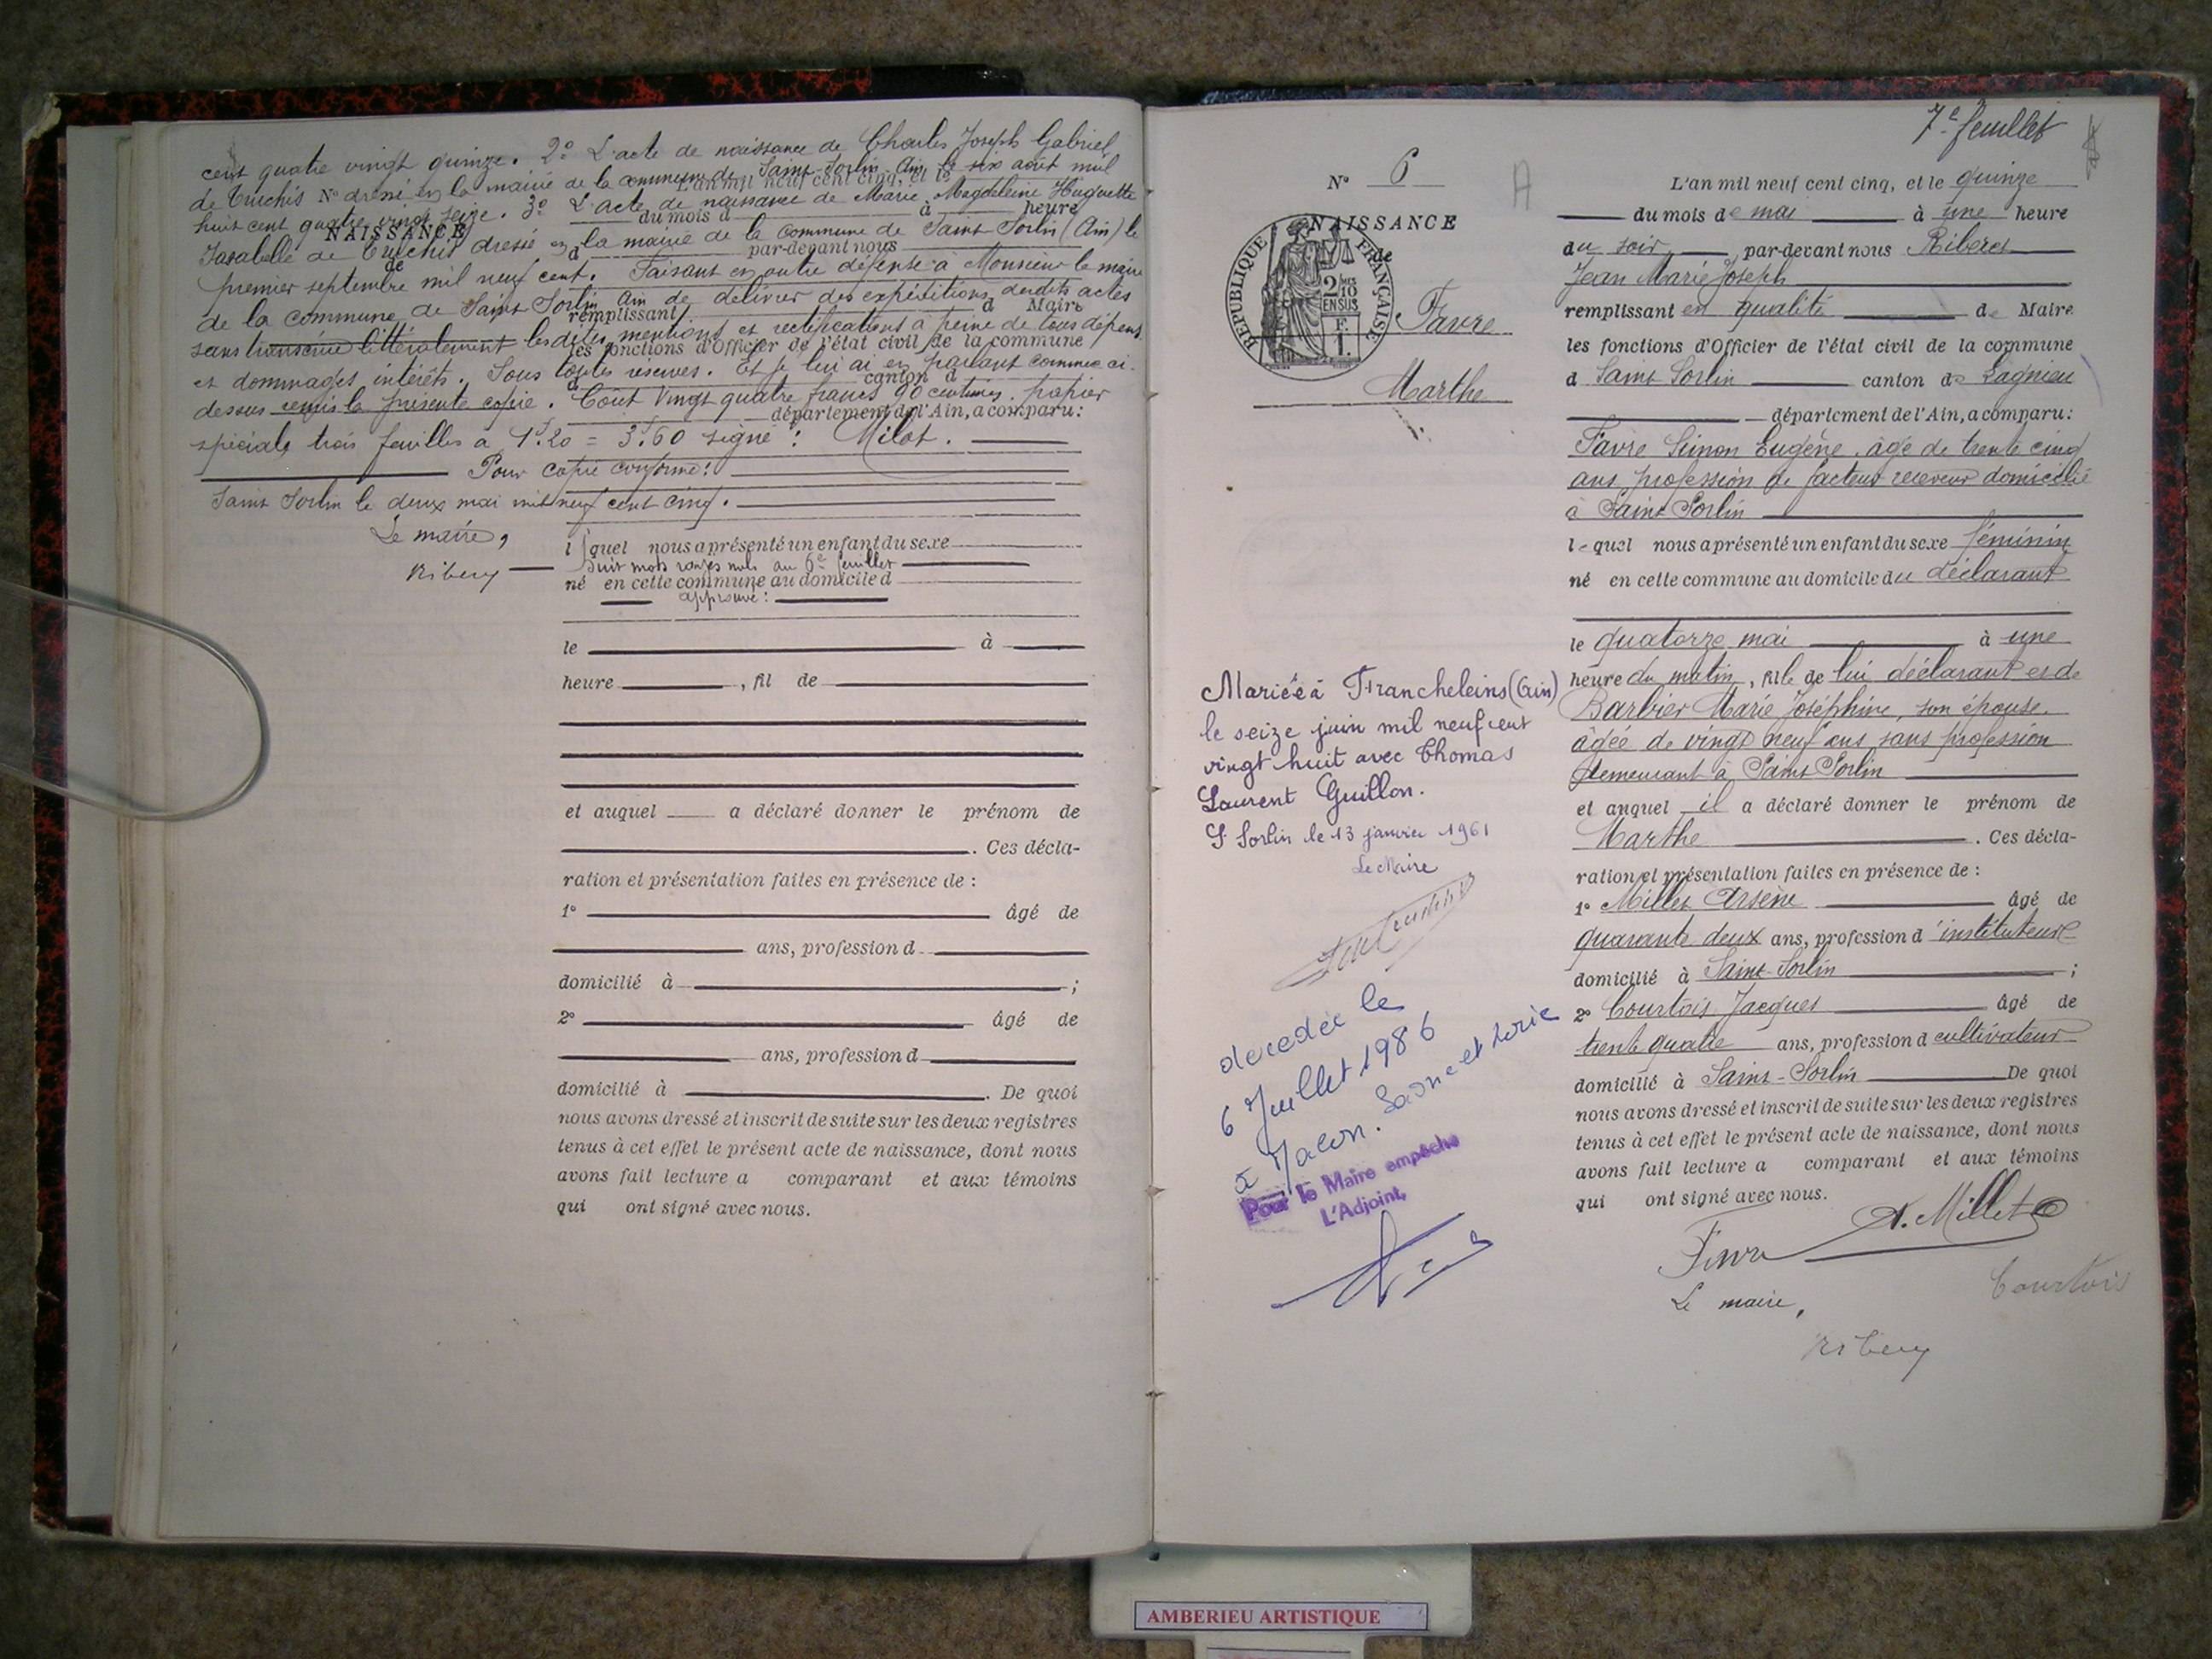 cent quatre vingt quinze. 2° L'acte de naissance de Charles Joseph Gabriel
de Cuichis dressé en la mairie de la commune de Saint-Sorlin Ain le six août mil
N°
L'an mil neuf cent cinq, et le
huit cent quatre vingt seize. 3° L'acte de naissance de Marie Magdeleine Huguette
du mois d à heure
NAISSANCE
Isabelle de Cuichis dressé en la mairie de la commune de Saint Sorlin (Ain) le
de
d par-devant nous
premier septembre mil neuf cent. Faisant en outre défense à Monsieur le maire
de la commune de Saint Sorlin Ain de délivrer des expéditions desdits actes
remplissant d Maire
sans transcrire littéralement les dites mentions et rectifications à peine de tous dépens
les fonctions d'Officier de l'état civil de la commune
et dommages intérêts. Sous toutes réserves. Et je lui ai en parlant comme ci-
d canton d
dessus remis la présente copie. Coût Vingt quatre francs 90 centimes. papier
département de l'Ain, a comparu:
spéciale trois feuilles à 1f.20 = 3f.60 signé : Milot.
Pour copie conforme:
Saint Sorlin le deux mai mil neuf cent cinq.
Le maire,
Ribery
l quel nous a présenté un enfant du sexe
Huit mots rayés nuls au 6e feuillet
né en cette commune au domicile d
approuvé:
le à
heure , fil de
et auquel a déclaré donner le prénom de
. Ces décla-
ration et présentation faites en présence de :
1° âgé de
ans, profession d
domicilié à ;
2° âgé de
ans, profession d
domicilié à . De quoi
nous avons dressé et inscrit de suite sur les deux registres
tenus à cet effet le présent acte de naissance, dont nous
avons fait lecture a comparant et aux témoins
qui ont signé avec nous.
7e feuillet
N° 6
A
NAISSANCE
de
RÉPUBLIQUE FRANÇAISE
2/10 EN SUS
F. 1.
Favre
Marthe
Mariée à Francheleins (Ain)
le seize juin mil neuf cent
vingt huit avec Thomas
Laurent Guillon.
S. Sorlin le 13 janvier 1961
Le Maire
décédée le
6 Juillet 1986
à Macon. Saône et Loire
Pour le Maire empêché
L'Adjoint,
L'an mil neuf cent cinq, et le quinze
du mois de mai à une heure
du soir par-devant nous Ribery
Jean Marie Joseph
remplissant en qualité de Maire
les fonctions d'Officier de l'état civil de la commune
d Saint Sorlin canton de Lagnieu
département de l'Ain, a comparu:
Favre Simon Eugène, âgé de trente cinq
ans, profession de facteur receveur domicilié
à Saint Sorlin
lequel nous a présenté un enfant du sexe féminin
né en cette commune au domicile du déclarant
le quatorze mai à une
heure du matin, fille de lui déclarant et de
Barbier Marie Joséphine, son épouse,
âgée de vingt neuf ans sans profession
demeurant à Saint Sorlin
et auquel il a déclaré donner le prénom de
Marthe . Ces décla-
ration et présentation faites en présence de :
1° Millet Arsène âgé de
quarante deux ans, profession d'instituteur
domicilié à Saint-Sorlin ;
2° Courtois Jacques âgé de
trente quatre ans, profession d cultivateur
domicilié à Saint-Sorlin De quoi
nous avons dressé et inscrit de suite sur les deux registres
tenus à cet effet le présent acte de naissance, dont nous
avons fait lecture a comparant et aux témoins
qui ont signé avec nous.
A. Millet
Favre
Courtois
Le maire,
Ribery
AMBERIEU ARTISTIQUE